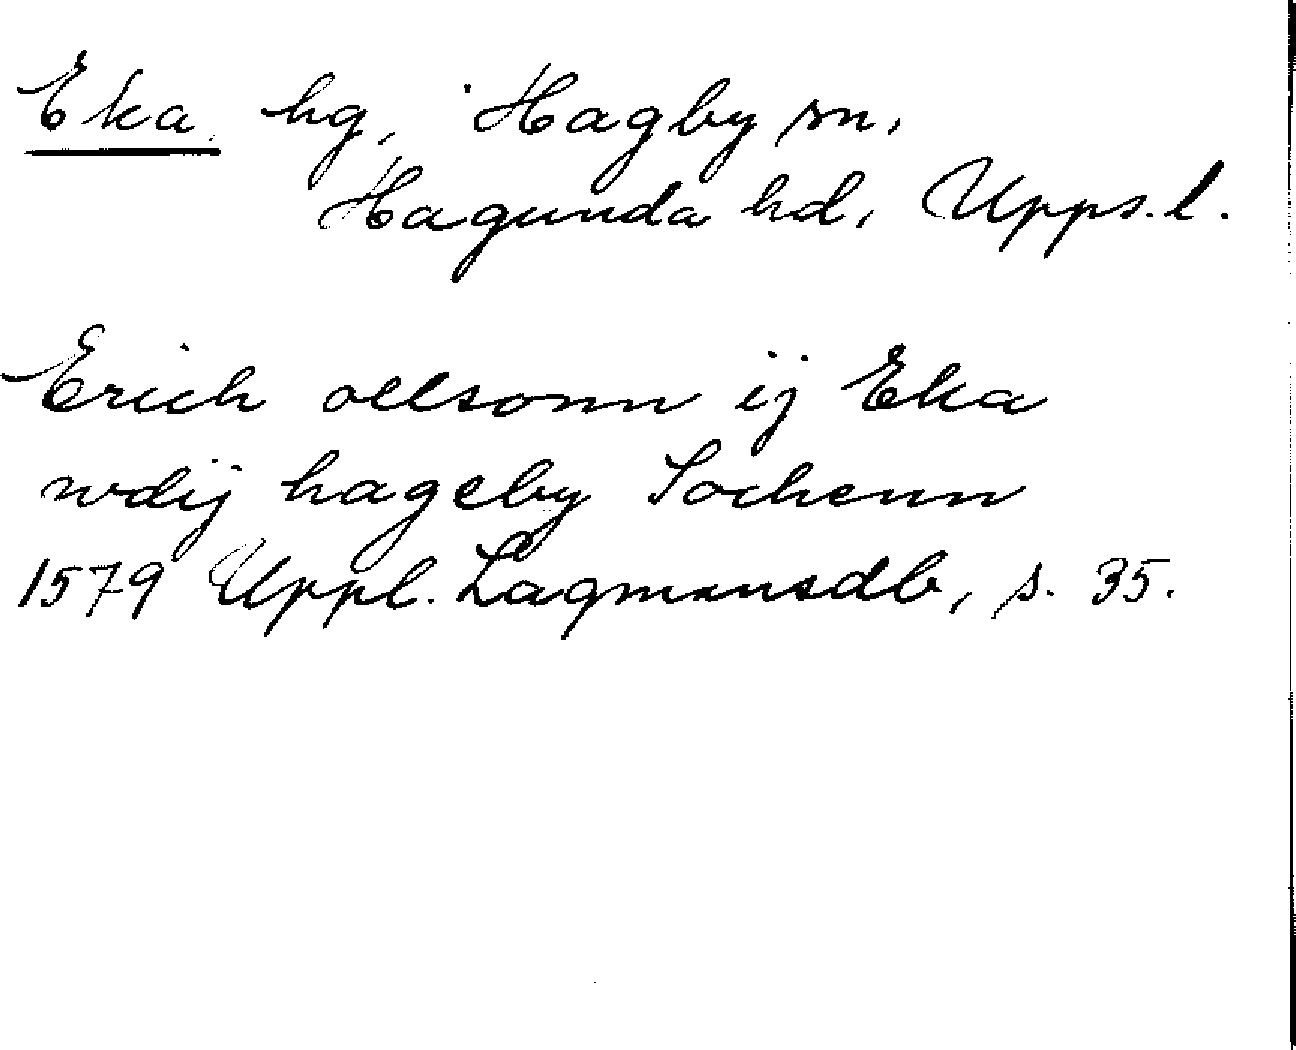 Eka hg, Hagby sn,
Hagunda hd, Upps.l.
Erich ollsonn ij Eka
wdij hageby Sochenn
1579 Uppl. Lagmansdb, s. 35.